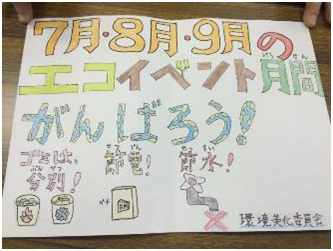 7月・8月・9月の
エコイベント月間
がんばろう!
ゴミは、分別! 節電! 節水!
環境美化委員会